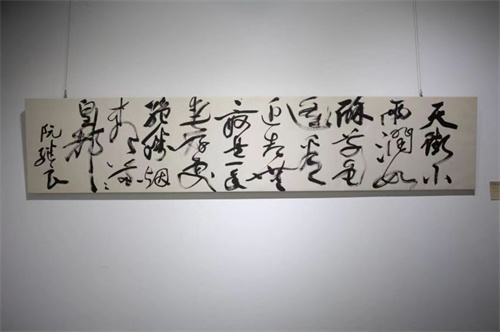 天街小
雨潤如
酥草色
遥看
近却無
最是一年
春好处
絶勝烟
柳满
皇都
阮良